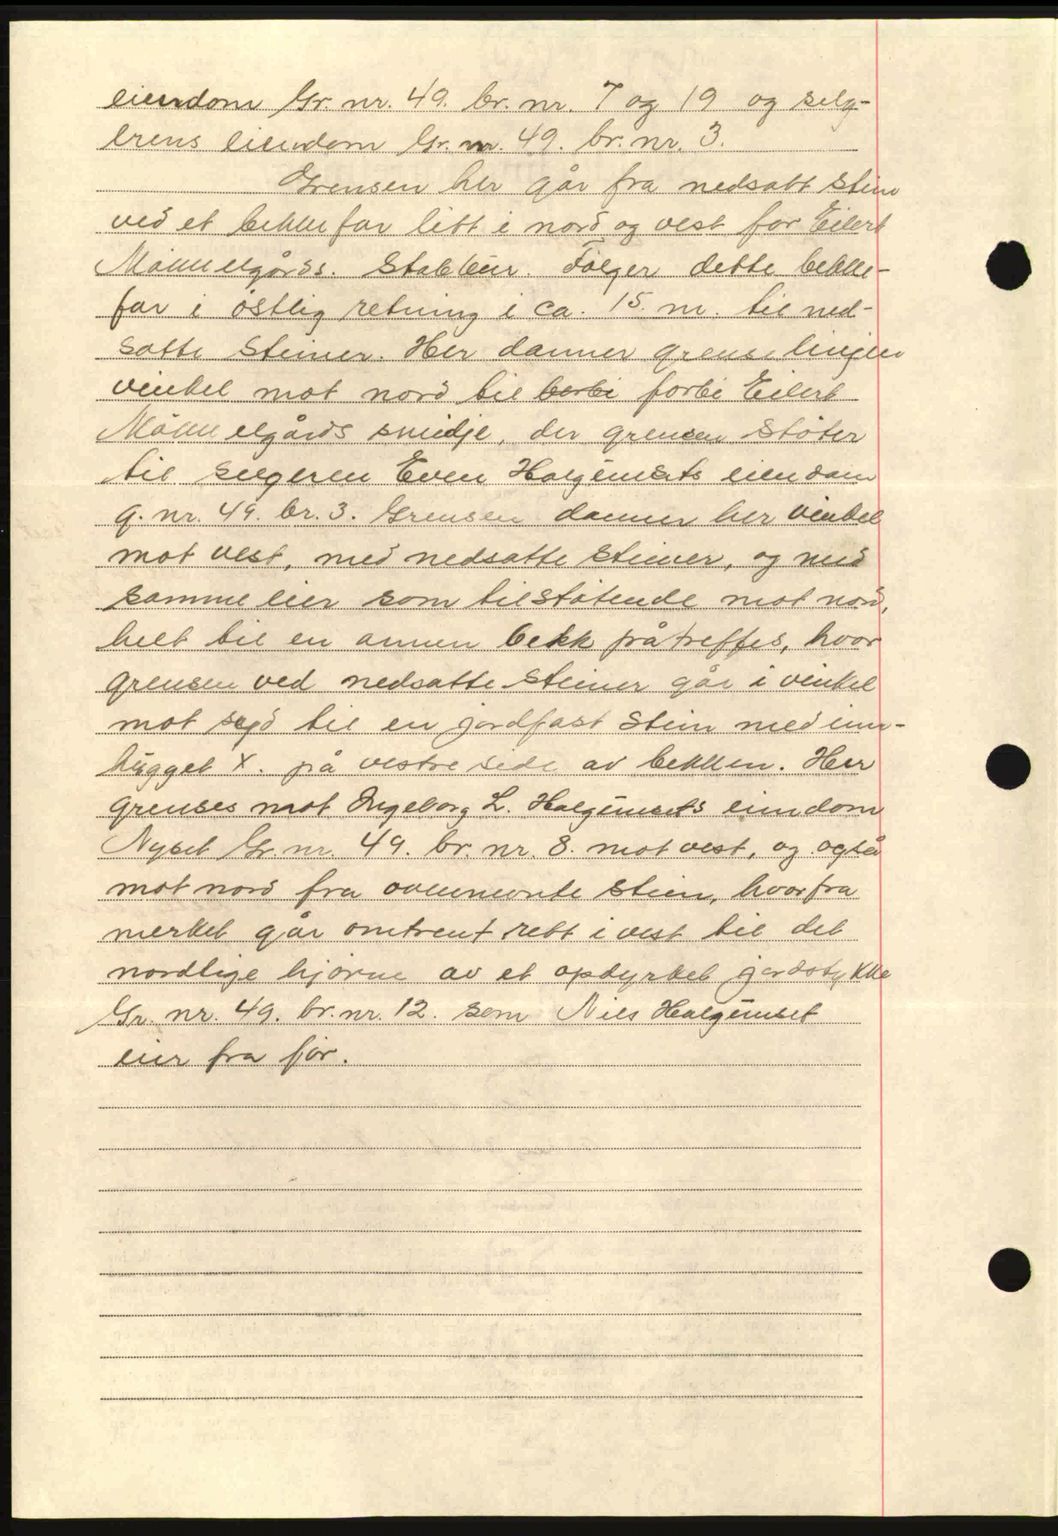 eiendom Gr. nr. 49. br. nr. 7 og 19 og selg-
erens eiendom Gr. nr. 49. br. nr. 3.
Grensen her går fra nedsatt stein
ved et bekkefar litt i nord og vest for Eilert
Måkkelgårds. Stabbur. Følger dette bekke-
far i østlig retning i ca. 15. m. til ned-
satte steiner. Her danner grenselinjen
vinkel mot nord til forbi Eilert
Måkkelgårds smidje, der grensen støter
til selgeren Even Halgunsets eiendom
g. nr. 49. br. 3. Grensen danner her vinkel
mot vest, med nedsatte steiner, og med
samme eier som tilstøtende mot nord,
helt til en annen bekk påtreffes, hvor
grensen ved nedsatte steiner går i vinkel
mot syd til en jordfast stein med inn-
hugget X. på vestre side av bekken. Her
grenses mot Ingeborg L. Halgunsets eiendom
Nyset Gr. nr. 49. br. nr. 8. mot vest, og også
mot nord fra ovennevnte stein, hvorfra
merket går omtrent rett i vest til det
nordlige hjørne av et opdyrket jordstykke
Gr. nr. 49. br. nr. 12. som Nils Halgunset
eier fra før.